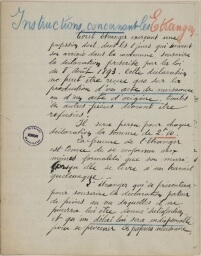 Instructions concernant les Etrangers
Tout étranger exerçant une
profession doit, dans les 8 jours qui suivent
son arrivée dans la commune souscrire
la déclaration prescrite par la loi
du 8 août 1893. Cette déclaration
ne peut être reçue que sur la
production d'un acte de naissance
ou d'un acte d'origine. Toutes
les autres pièces devront être
refusées.
Il sera perçu pour chaque
déclaration la somme de 2f.10.
La femme de l'étranger
est tenue de se conformer aux
mêmes formalités que son mari
lorsqu'elle se livre à un travail
quelconque.
étranger qui se présentera
pour souscrire la déclaration
et qui
pour se procurer les papiers nécessaires.